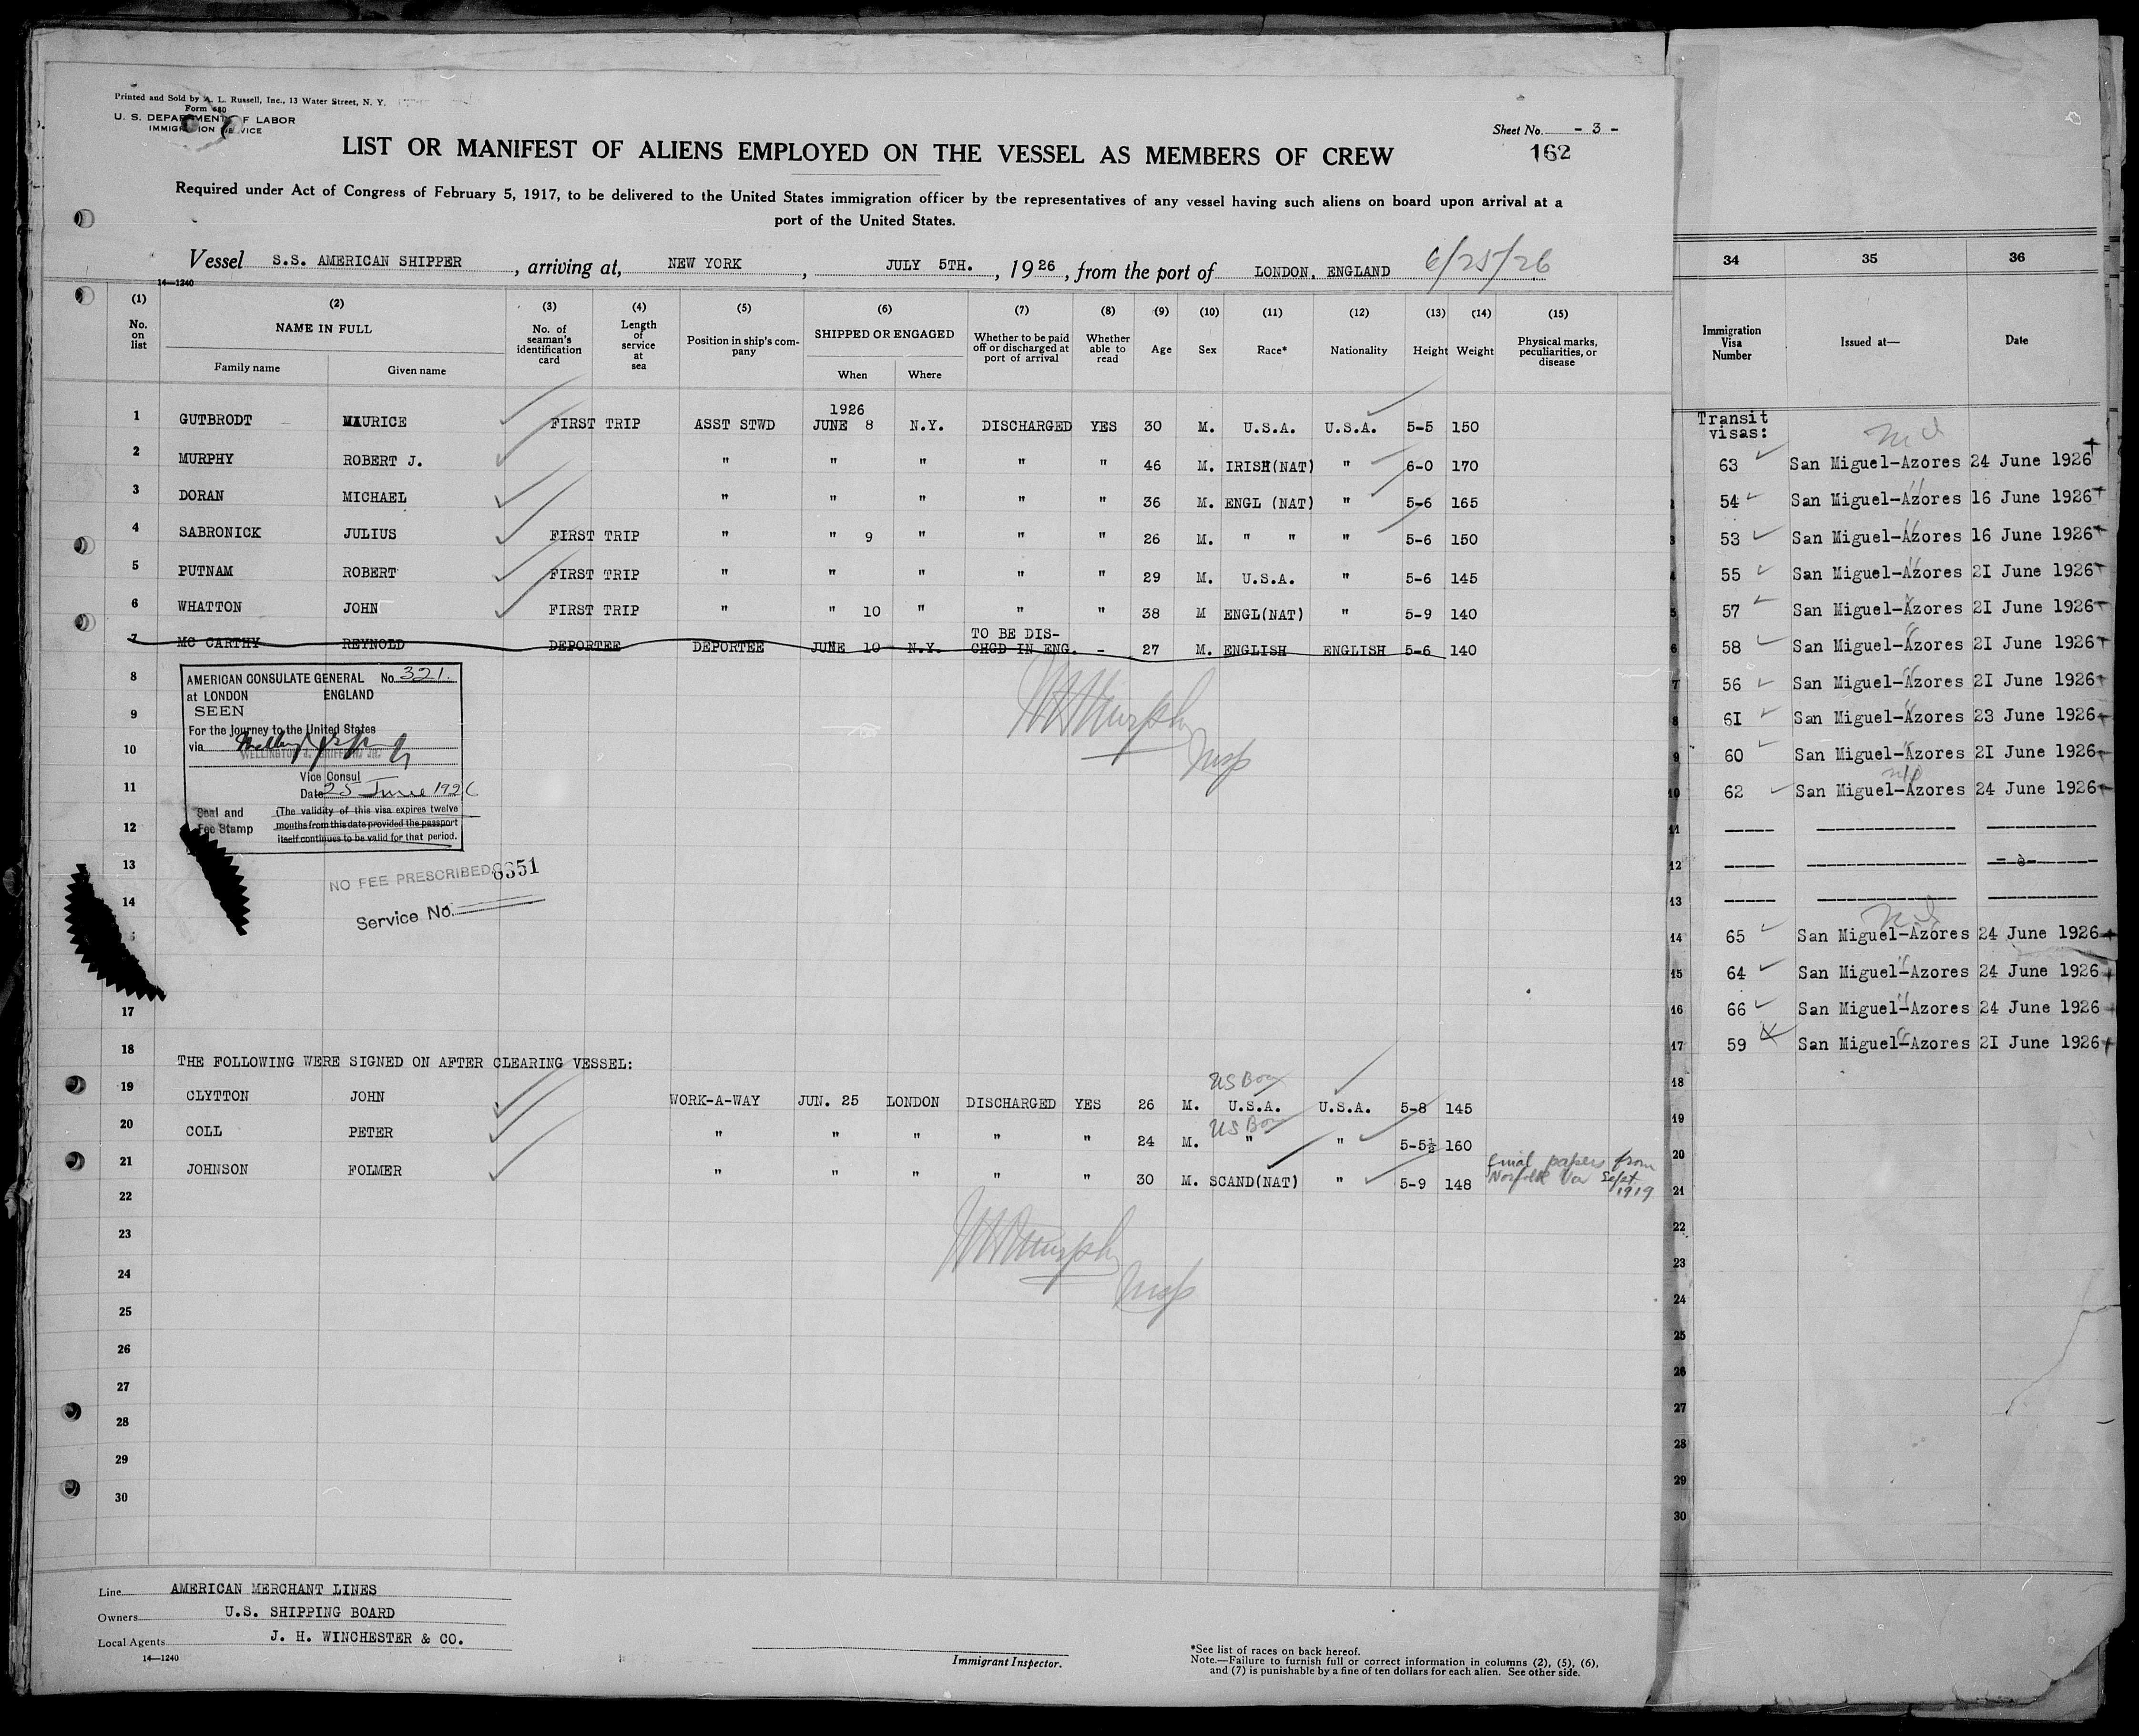 Printed and Sold by A. L. Russell, Inc., 13 Water Street, N. Y.
Form 680
U. S. DEPARTMENT OF LABOR
IMMIGRATION SERVICE
Sheet No. - 3 -
162
LIST OR MANIFEST OF ALIENS EMPLOYED ON THE VESSEL AS MEMBERS OF CREW
Required under Act of Congress of February 5, 1917, to be delivered to the United States immigration officer by the representatives of any vessel having such aliens on board upon arrival at a
port of the United States.
Vessel S.S. AMERICAN SHIPPER, arriving at, NEW YORK, JULY 5TH., 1926, from the port of LONDON, ENGLAND 6/25/26
14—1240
(1) (2) (3) (4) (5) (6) (7) (8) (9) (10) (11) (12) (13) (14) (15)
No. on list NAME IN FULL Family name Given name No. of seaman's identification card Length of service at sea Position in ship's company SHIPPED OR ENGAGED When Where Whether to be paid off or discharged at port of arrival Whether able to read Age Sex Race* Nationality Height Weight Physical marks, peculiarities, or disease
1 GUTBRODT MAURICE FIRST TRIP ASST STWD 1926 JUNE 8 N.Y. DISCHARGED YES 30 M. U.S.A. U.S.A. 5-5 150
2 MURPHY ROBERT J. " " " " " 46 M. IRISH(NAT) " 6-0 170
3 DORAN MICHAEL " " " " " 36 M. ENGL (NAT) " 5-6 165
4 SABRONICK JULIUS FIRST TRIP " " 9 " " " 26 M. " " " 5-6 150
5 PUTNAM ROBERT FIRST TRIP " " " " " 29 M. U.S.A. " 5-6 145
6 WHATTON JOHN FIRST TRIP " " 10 " " " 38 M ENGL(NAT) " 5-9 140
7 MC CARTHY REYNOLD DEPORTEE DEPORTEE JUNE 10 N.Y. TO BE DIS-CHGD IN ENG. - 27 M. ENGLISH ENGLISH 5-6 140
8
9
10
11
12
13
14
AMERICAN CONSULATE GENERAL No. 321.
at LONDON ENGLAND
SEEN
For the Journey to the United States
via
Vice Consul
Date 25 June 1926
Seal and Fee Stamp
(The validity of this visa expires twelve
months from this date provided the passport
itself continues to be valid for that period.
NO FEE PRESCRIBED 6351
Service No.
Murphy
Insp
17
18
THE FOLLOWING WERE SIGNED ON AFTER CLEARING VESSEL:
19 CLYTTON JOHN WORK-A-WAY JUN. 25 LONDON DISCHARGED YES 26 M. US Born U.S.A. U.S.A. 5-8 145
20 COLL PETER " " " " " 24 M. US Born " " 5-5½ 160
21 JOHNSON FOLMER " " " " " 30 M. SCAND(NAT) " 5-9 148 final papers from Norfolk Va Sept 1919
22
23
24
25
26
27
28
29
30
Murphy
Insp
Line AMERICAN MERCHANT LINES
Owners U.S. SHIPPING BOARD
Local Agents J. H. WINCHESTER & CO.
14—1240
Immigrant Inspector.
*See list of races on back hereof.
Note.—Failure to furnish full or correct information in columns (2), (5), (6),
and (7) is punishable by a fine of ten dollars for each alien. See other side.
34 35 36
Immigration Visa Number Issued at— Date
Transit
visas:
63 San Miguel-Azores 24 June 1926
54 San Miguel-Azores 16 June 1926
3 53 San Miguel-Azores 16 June 1926
4 55 San Miguel-Azores 2I June 1926
5 57 San Miguel-Azores 2I June 1926
6 58 San Miguel-Azores 2I June 1926
7 56 San Miguel-Azores 2I June 1926
8 6I San Miguel-Azores 23 June 1926
9 60 San Miguel-Azores 2I June 1926
10 62 San Miguel-Azores 24 June 1926
11
12
13
14 65 San Miguel-Azores 24 June 1926
15 64 San Miguel-Azores 24 June 1926
16 66 San Miguel-Azores 24 June 1926
17 59 San Miguel-Azores 2I June 1926
18
19
20
21
22
23
24
25
26
27
28
29
30